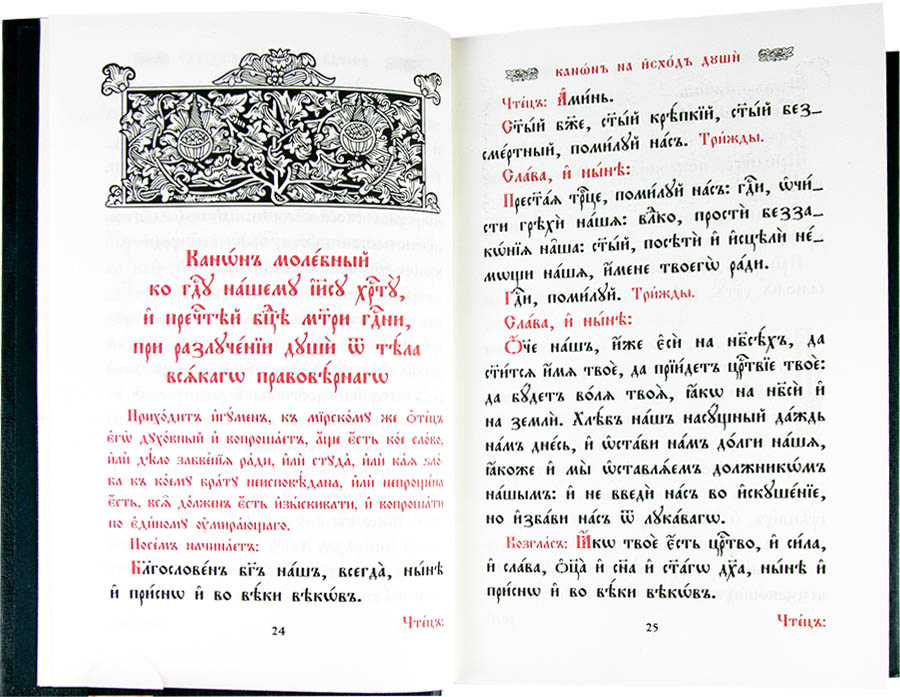 Канѡ́нъ моле́бный
ко гдⷭ҇ꙋ на́шемꙋ і҆и҃сꙋ хрⷭ҇тꙋ̀,
и҆ пречⷭ҇тѣй бцⷣѣ мт҃ри гдⷭ҇ни,
при разлꙋче́нїи дꙋшѝ ѿ тѣ́ла
всѧ́кагѡ правовѣ́рнагѡ
Прихо́дитъ и҆гꙋ́менъ, къ мїрско́мꙋ же ѻ҆те́цъ
є҆гѡ̀ дꙋхо́вный и҆ вопроша́етъ, а҆́ще є҆́сть ко́е сло́во,
и҆лѝ дѣ́ло забве́нїѧ ра́ди, и҆лѝ стꙋда̀, и҆лѝ ка́ѧ ѕло́-
ба къ ко́емꙋ бра́тꙋ неисповѣ́дана, и҆лѝ непроще́на
є҆́сть, всѧ̑ до́лженъ є҆́сть и҆зы́скивати, и҆ вопроша́ти
по є҆ди́номꙋ ᲂу҆мира́ющаго.
Посе́мъ начина́етъ:
Блгⷭ҇ослове́нъ бг҃ъ на́шъ, всегда̀, ны́нѣ
и҆ при́снѡ и҆ во вѣ́ки вѣкѡ́въ.
Чте́цъ:
24
канѡ́нъ на и҆схо́дъ дꙋшѝ
Чте́цъ: А҆ми́нь.
Ст҃ы́й бж҃е, ст҃ы́й крѣ́пкїй, ст҃ы́й без-
сме́ртный, поми́лꙋй на́съ. Три́жды.
Сла́ва, и҆ ны́нѣ:
Прест҃а́ѧ трⷪ҇це, поми́лꙋй на́съ: гдⷭ҇и, ѡ҆чи́-
сти грѣхѝ на́шѧ: влⷣко, простѝ безза-
кѡ́нїѧ на̑ша: ст҃ы́й, посѣтѝ и҆ и҆сцѣлѝ не́-
мѡщи на́шѧ, и҆́мене твоегѡ̀ ра́ди.
Гдⷭ҇и, поми́лꙋй. Три́жды.
Сла́ва, и҆ ны́нѣ:
Ѻ҆́ч҃е на́шъ, и҆́же є҆сѝ на нб҃сѣ́хъ, да
ст҃и́тсѧ и҆́мѧ твоѐ, да прїи́детъ црⷭ҇твїе твоѐ:
да бꙋ́детъ во́лѧ твоѧ̀, ꙗ҆́кѡ на нб҃сѝ и҆
на землѝ. Хлѣ́бъ на́шъ насꙋ́щный да́ждь
на́мъ дне́сь, и҆ ѡ҆ста́ви на́мъ до́лги на́шѧ,
ꙗ҆́коже и҆ мы̀ ѡ҆ставлѧ́емъ должникѡ́мъ
на́шымъ: и҆ не введѝ на́съ во и҆скꙋше́нїе,
но и҆зба́ви на́съ ѿ лꙋка́вагѡ.
Возгла́съ: Ꙗ҆́кѡ твоѐ є҆́сть црⷭ҇тво, и҆ си́ла,
и҆ сла́ва, ѻ҆ц҃а̀ и҆ сн҃а и҆ ст҃а́гѡ дх҃а, ны́нѣ и҆
при́снѡ и҆ во вѣ́ки вѣкѡ́въ.
Чте́цъ:
25